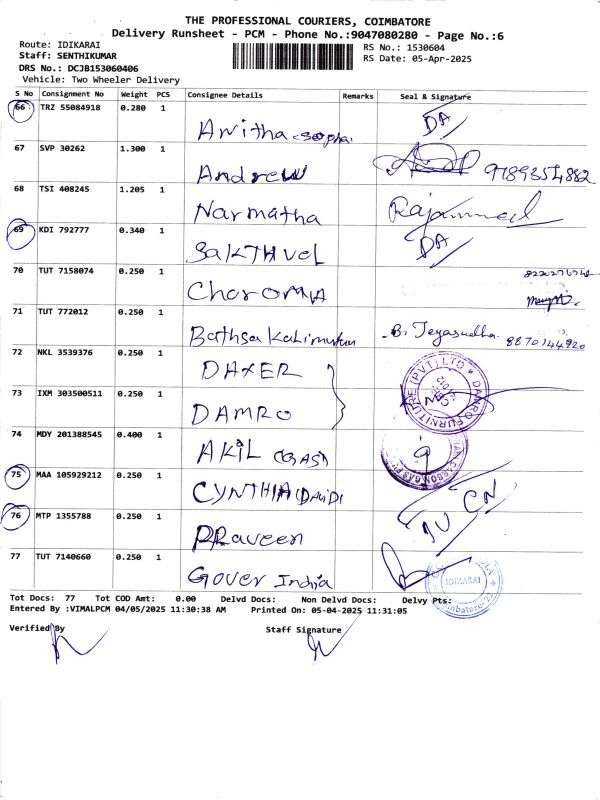 THE PROFESSIONAL COURIERS, COIMBATORE
Delivery Runsheet - PCM - Phone No.:9047080280 - Page No.:6
Route: IDIKARAI
Staff: SENTHIKUMAR
DRS No.: DCJB153060406
Vehicle: Two Wheeler Delivery
RS No.: 1530604
RS Date: 05-Apr-2025
S No Consignment No Weight PCS Consignee Details Remarks Seal & Signature
66 TRZ 55084918 0.280 1 Anitha DA
67 SVP 30262 1.300 1 Andrew 9789354882
68 TSI 408245 1.205 1 Narmatha
69 KDI 792777 0.340 1 SAKTHVEL DA
70 TUT 7158074 0.250 1
71 TUT 772012 0.250 1 B. Jeyasudha 8870144920
72 NKL 3539376 0.250 1 DAXER
73 IXM 303500511 0.250 1 DAMRO DAMRO FURNITURE (PVT) LTD
74 MDY 201388545 0.400 1 AKIL
75 MAA 105929212 0.250 1 CYNTHIA
76 MTP 1355788 0.250 1 PRaveen
77 TUT 7140660 0.250 1 Gover India IDIKARAI
Tot Docs: 77 Tot COD Amt: 0.00 Delvd Docs: Non Delvd Docs: Delvy Pts:
Entered By :VIMALPCM 04/05/2025 11:30:38 AM Printed On: 05-04-2025 11:31:05
Verified By Staff Signature